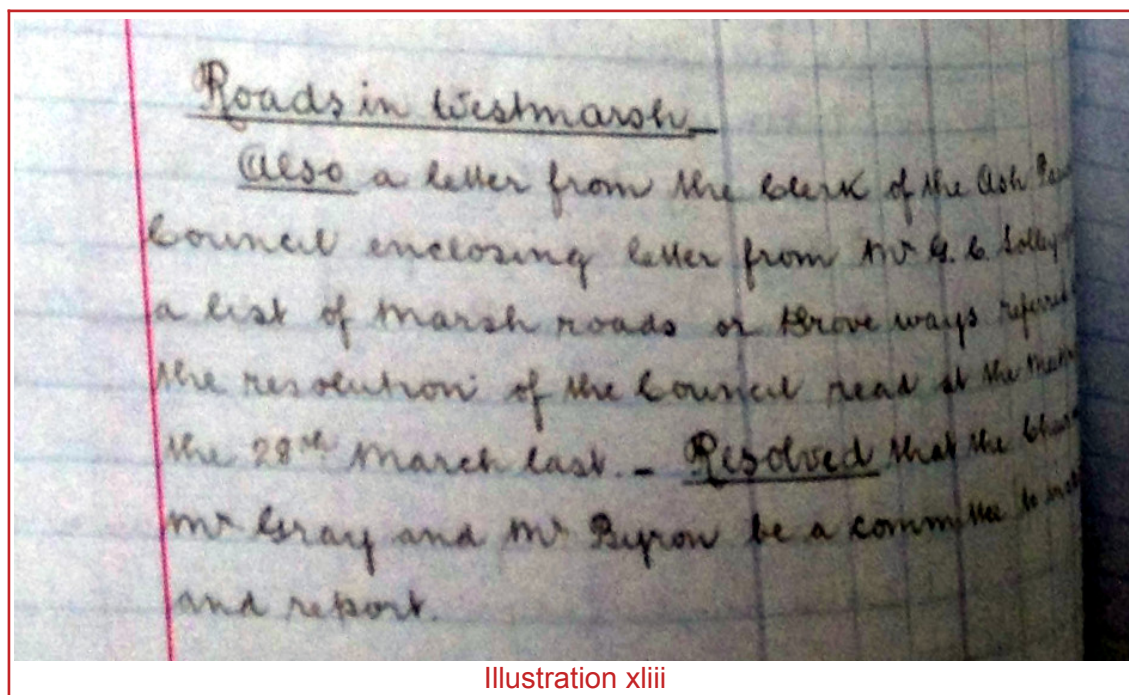 Roads in Westmarsh
Also a letter from the Clerk of the Ash
Council enclosing letter from Mr G. C. Solley
a list of Marsh roads or Drove ways referred
the resolution of the Council read at the
the 28th March last. - Resolved that the
Mr Gray and Mr Byron be a committee to
and report.
Illustration xliii